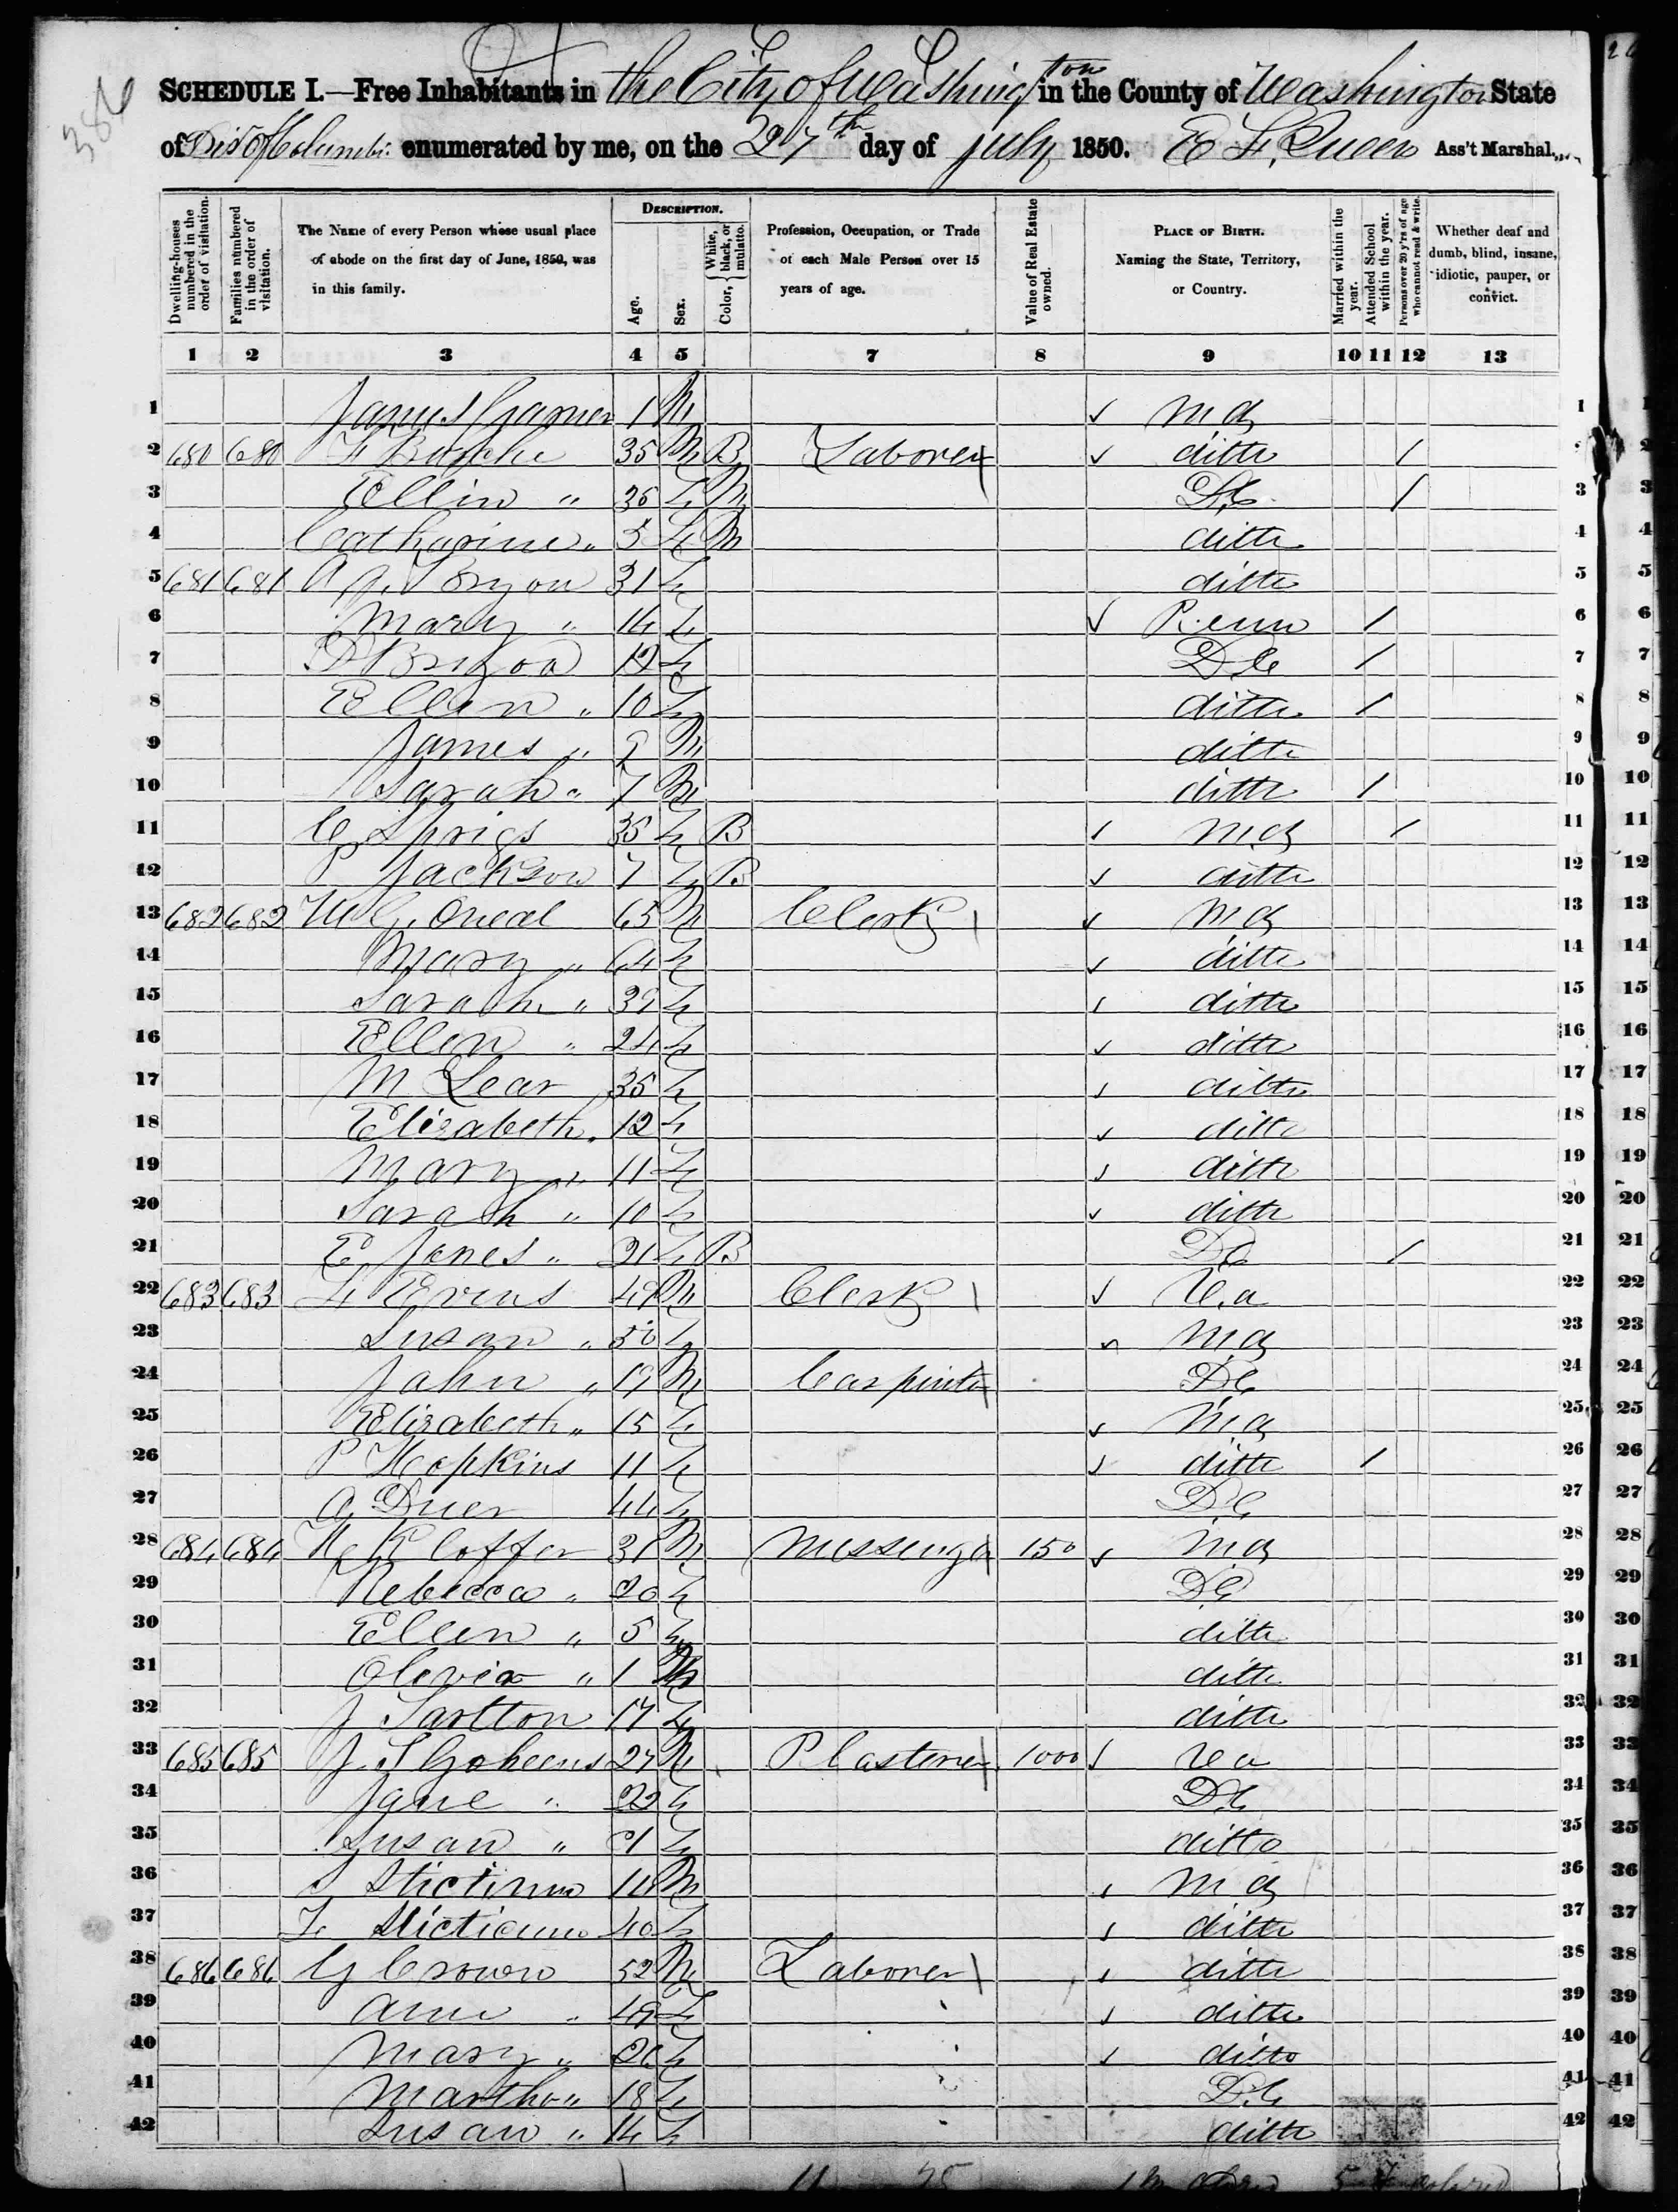 386
SCHEDULE I.—Free Inhabitants in the City of Washington in the County of Washington State
of Dis of Columbi: enumerated by me, on the 27th day of July 1850. E F. Queen Ass't Marshal.
Dwelling-houses numbered in the order of visitation. Families numbered in the order of visitation. The Name of every Person whose usual place of abode on the first day of June, 1850, was in this family. DESCRIPTION. Age. Sex. Color, { White, black, or mulatto. Profession, Occupation, or Trade of each Male Person over 15 years of age. Value of Real Estate owned. PLACE OF BIRTH. Naming the State, Territory, or Country. Married within the year. Attended School within the year. Persons over 20 y'rs of age who cannot read & write. Whether deaf and dumb, blind, insane, idiotic, pauper, or convict.
1 2 3 4 5 7 8 9 10 11 12 13
1 James 1 M ✓ Md 1
2 680 680 F 35 M B Laborer ✓ ditto /
3 Ellin " 36 F M D.C. / 3
4 Catharine " 5 F M ditto 4
5 681 681 31 F ditto 5
6 Mary " 14 F ✓ Penn / 6
7 12 F D C / 7
8 Ellen " 10 F ditto / 8
9 James " 9 M ditto 9
10 Sarah " 7 M ditto / 10
11 C Sprigs 35 F B ✓ Md / 11
12 P Jackson 7 F B ✓ ditto 12
13 682 682 W G. Oneal 65 M Clerk ✓ Md 13
14 Mary " 64 F ✓ ditto 14
15 Sarah " 39 F ✓ ditto 15
16 Ellen " 24 F ✓ ditto 16
17 M Lear 35 F ✓ ditto 17
18 Elizabeth " 12 F ✓ ditto 18
19 Mary " 11 F ✓ ditto 19
20 Sarah " 10 F ✓ ditto 20
21 E Jones " 21 F B DC / 21
22 683 683 F Evins 49 M Clerk ✓ V.a 22
23 Susan " 50 F ✓ Md 23
24 John " 19 M Carpinter D.C 24
25 Elizabeth " 15 F ✓ Md 25
26 P Hopkins 11 F ✓ ditto / 26
27 A Duer 44 F D C 27
28 684 684 Coffer 31 M Messenger 150 ✓ Md 28
29 Rebecca " 20 F D C 29
30 Ellen " 5 F ditto 30
31 Olevia " 1 ditto 31
32 J Sartton 17 F ditto 32
33 685 685 J. S Goheens 27 M Plasterer 1000 ✓ Va 33
34 Jane " 22 F D.C 34
35 Susan " 1 F ditto 35
36 M ✓ Md 36
37 40 F ✓ ditto 37
38 686 686 G Crown 52 M Laborer ✓ ditto 38
39 Ann " 49 F ✓ ditto 39
40 Mary " F ✓ ditto 40
41 Martha " 18 F D.C 41
42 Susan " 14 F ditto 42